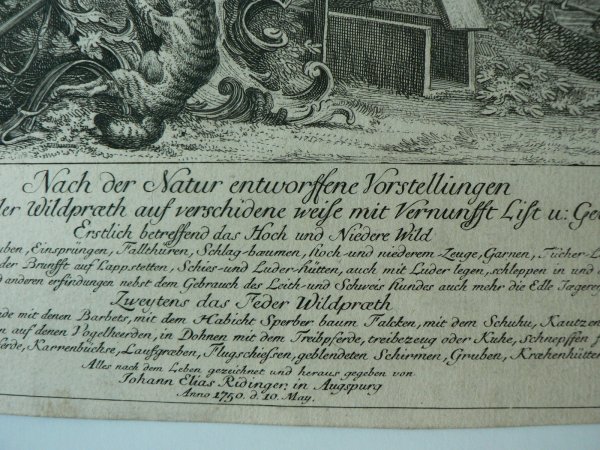 Nach der Natur entworffene Vorstellungen
Wildpræth auf verschidene weise mit Vernunfft List u:
Erstlich betreffend das Hoch und Niedere Wild
Einsprüngen, Fallthüren, Schlag-bæumen, hoch-und niederem-Zeuge, Garnen, Tücher-
der Brunfft auf Lappstetten, Schies-und Luder-hütten, auch mit Luder legen, schleppen in und
anderen erfindungen nebst dem Gebrauch des Leith-und Schweis Hundes auch mehr die Edle
Zweytens das Feder Wildpræth
mit denen Barbets, mit dem Habicht Sperber baum Falcken, mit dem Schuhu, Kautzen
auf denen Vogelheerden, in Dohnen mit dem Treibpferde, treibetzeug oder Kuhe, schnepffen
Karrenbüchse, Laufgraben, Flugschiessen, geblendeten Schirmen, Gruben, Kræhenhütten
Alles nach dem Leben gezeichnet und heraus gegeben von
Johann Elias Ridinger, in Augspurg
Anno 1750. d. 10. May.